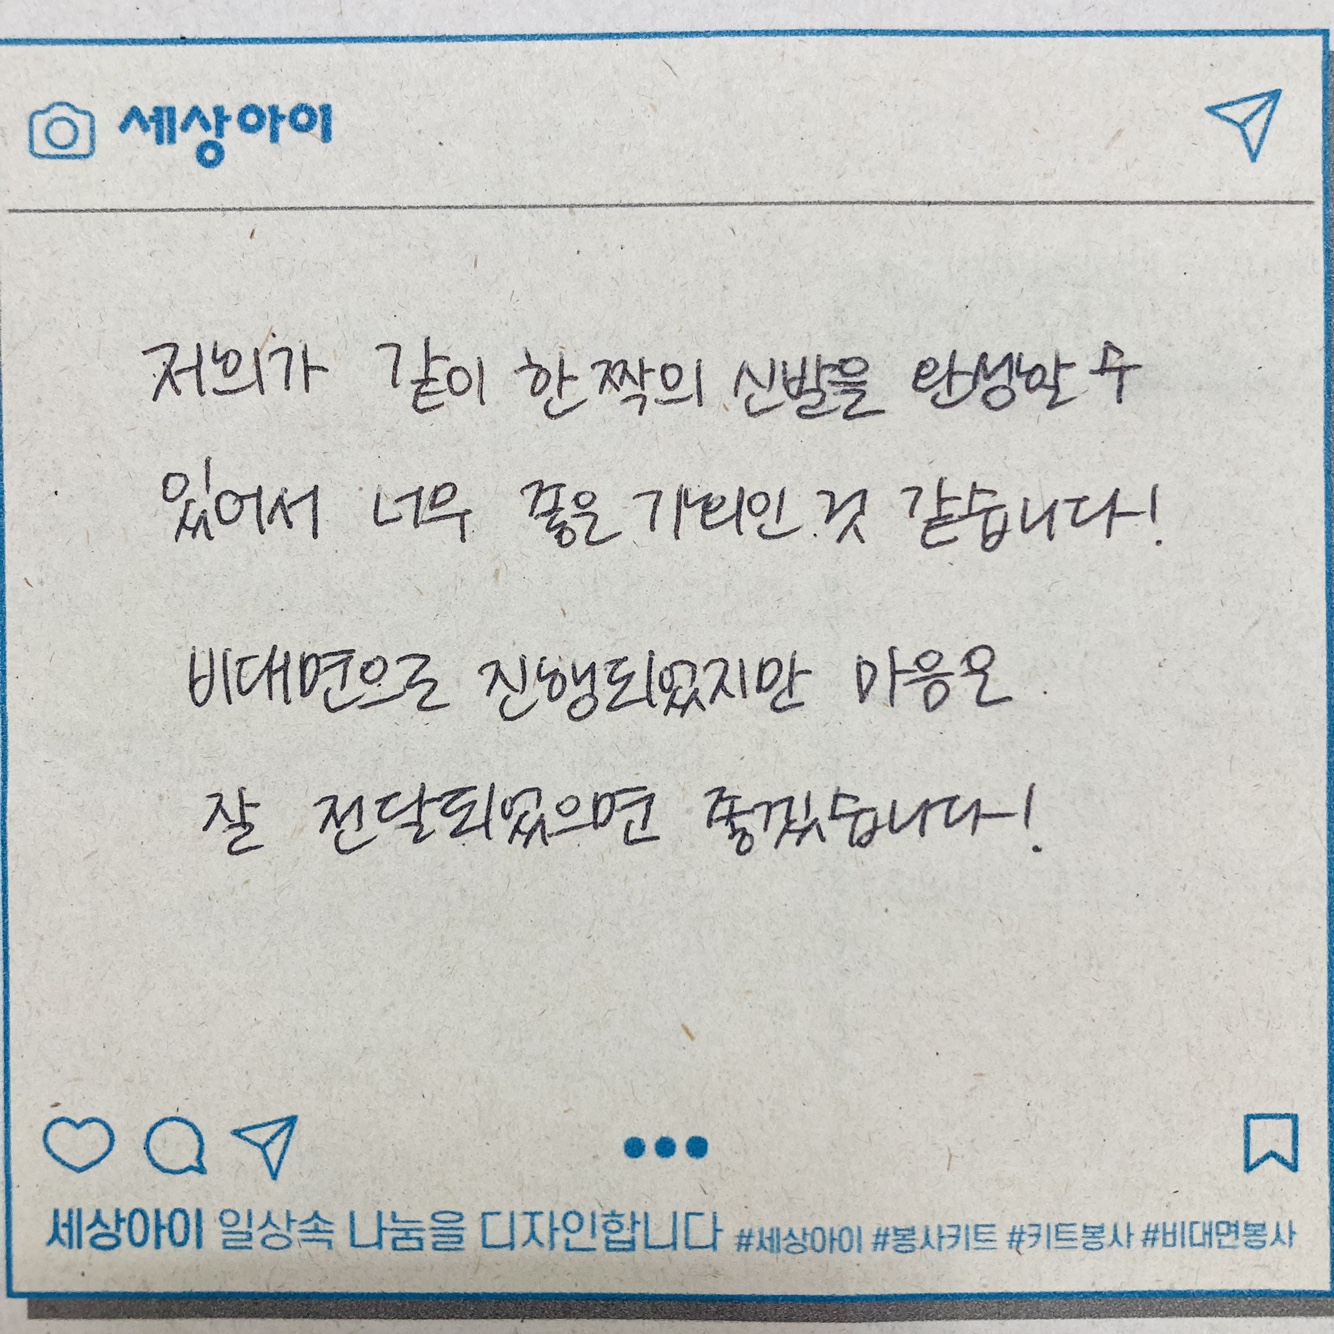 세상아이
저희가 같이 한 짝의 신발을 완성할 수
있어서 너무 좋은 기회인 것 같습니다!
비대면으로 진행되었지만 마음은
잘 전달되었으면 좋겠습니다!
세상아이 일상속 나눔을 디자인합니다 #세상아이 #봉사키트 #키트봉사 #비대면봉사